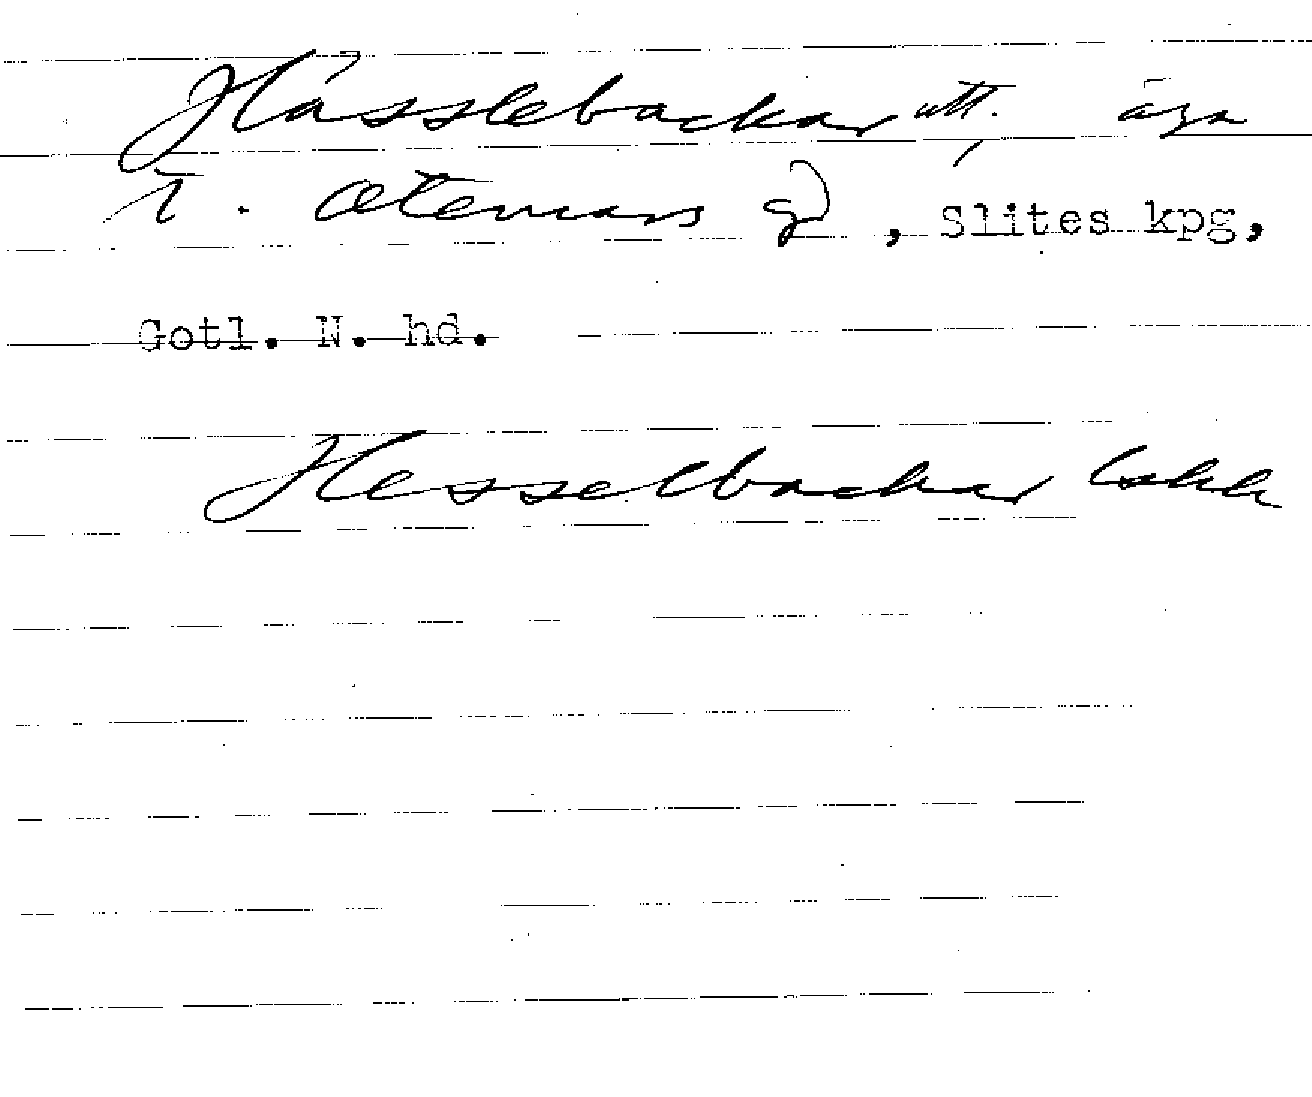 Hässlebackar utt. äga
t. Otemars gd, Slites kpg,
Gotl. N. hd.
Hesselbackar Lskk